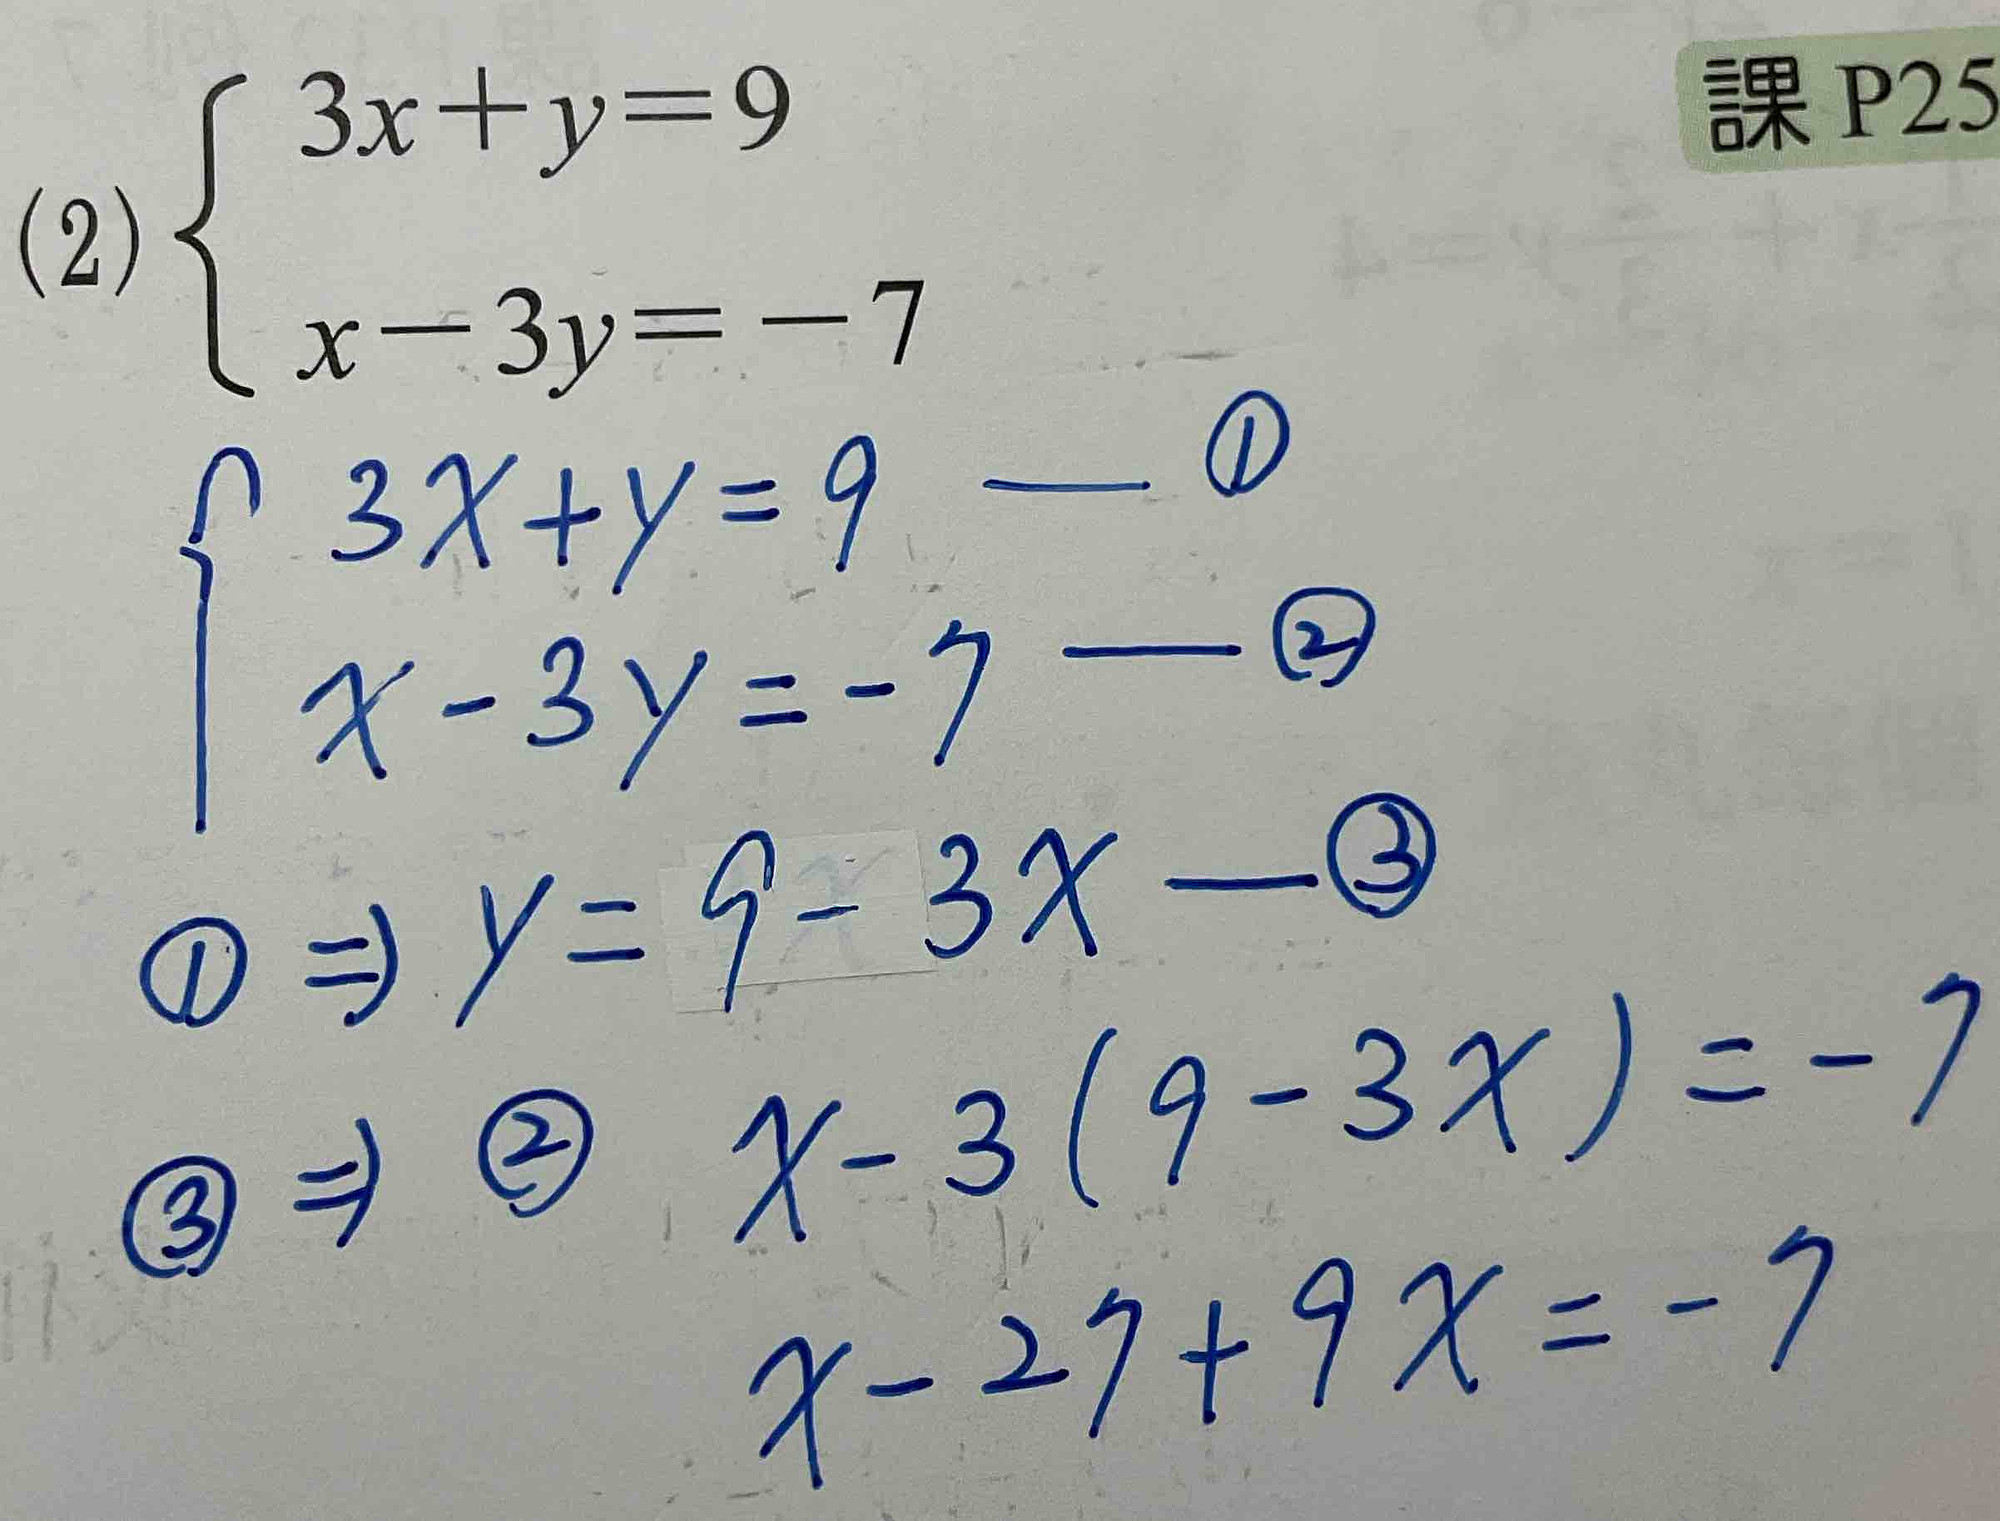 課 P25
(2) { 3x+y=9
x-3y=-7
{ 3x+y=9 — ①
x-3y=-7 — ②
① ⇒ y=9-3x — ③
③ ⇒ ② x-3(9-3x)=-7
x-27+9x=-7